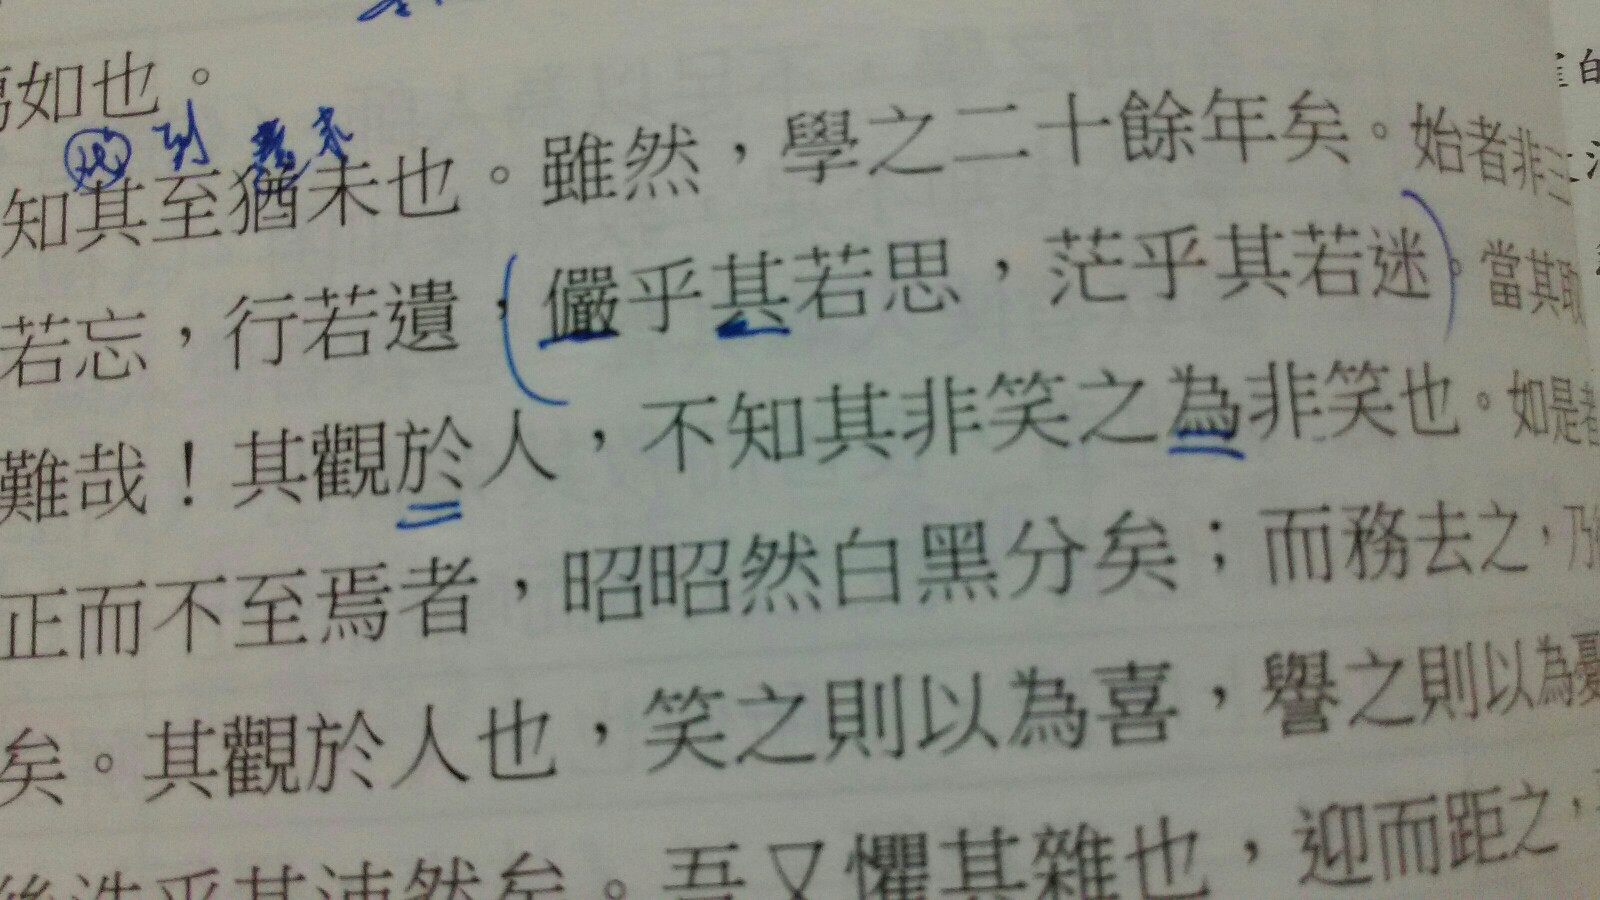 如也。
知其至猶未也。雖然，學之二十餘年矣。始者非三
若忘，行若遺，儼乎其若思，茫乎其若迷。當其取
難哉！其觀於人，不知其非笑之為非笑也。如是者
正而不至焉者，昭昭然白黑分矣；而務去之，乃
矣。其觀於人也，笑之則以為喜，譽之則以為憂
後浩乎其沛然矣。吾又懼其雜也，迎而距之，